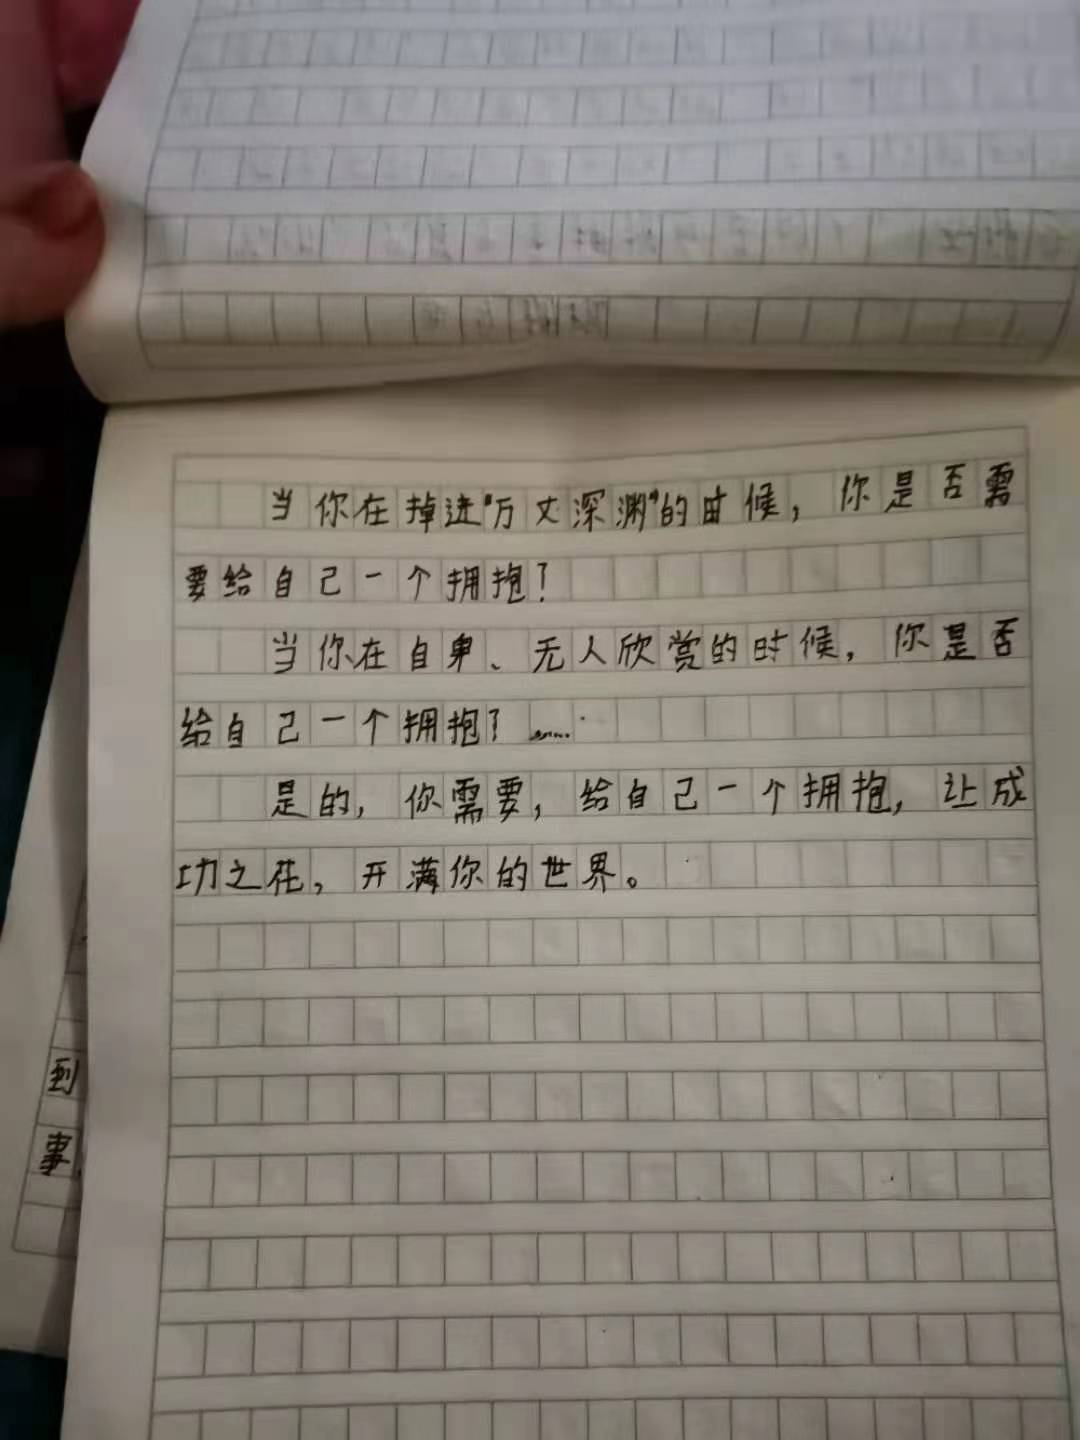 当你在掉进“万丈深渊”的时候，你是否需
要给自己一个拥抱？
当你在自卑、无人欣赏的时候，你是否
给自己一个拥抱？……
是的，你需要，给自己一个拥抱，让成
功之花，开满你的世界。
到
事